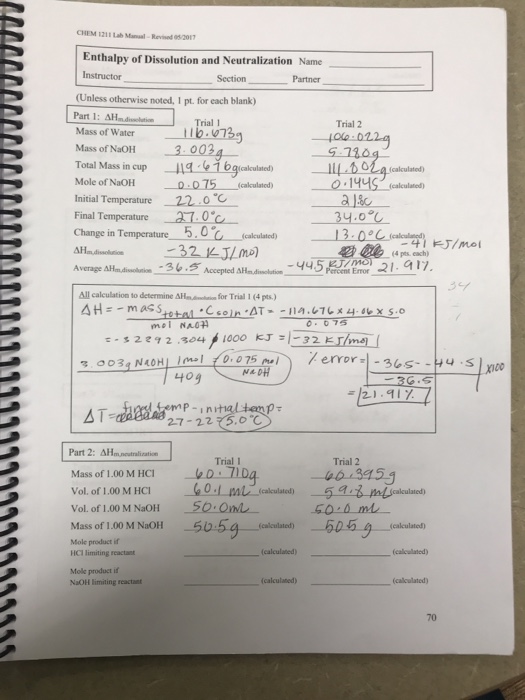 CHEM 1211 Lab Manual - Revised 05/2017
Enthalpy of Dissolution and Neutralization Name
Instructor Section Partner
(Unless otherwise noted, 1 pt. for each blank)
Part 1: ΔHm,dissolution Trial 1 Trial 2
Mass of Water 116.673g 106.022g
Mass of NaOH 3.003g 5.780g
Total Mass in cup 119.676g (calculated) 111.802g (calculated)
Mole of NaOH 0.075 (calculated) 0.1445 (calculated)
Initial Temperature 22.0°C 21.0C
Final Temperature 27.0°C 34.0°C
Change in Temperature 5.0°C (calculated) 13.0°C (calculated)
ΔHm,dissolution -32 KJ/mol -41 KJ/mol (4 pts. each)
Average ΔHm,dissolution -36.5 Accepted ΔHm,dissolution -44.5 KJ/mol Percent Error 21.91%
34
All calculation to determine ΔHm,dissolution for Trial 1 (4 pts.)
ΔH = - mass total · C soln · ΔT = -119.676 x 4.06 x 5.0
mol NaOH 0.075
= -32392.304 / 1000 KJ = -32 KJ/mol
3.003g NaOH | 1 mol = 0.075 mol NaOH
40g
% error = | -36.5 - -44.5 | x100
-36.5
= 21.91%
ΔT = final temp - initial temp =
27 - 22 = 5.0°C
Part 2: ΔHm,neutralization
Trial 1 Trial 2
Mass of 1.00 M HCl 60.710g 60.395g
Vol. of 1.00 M HCl 60.1 mL (calculated) 59.8 mL (calculated)
Vol. of 1.00 M NaOH 50.0mL 50.0 mL
Mass of 1.00 M NaOH 50.5g (calculated) 50.5 g (calculated)
Mole product if
HCl limiting reactant (calculated) (calculated)
Mole product if
NaOH limiting reactant (calculated) (calculated)
70